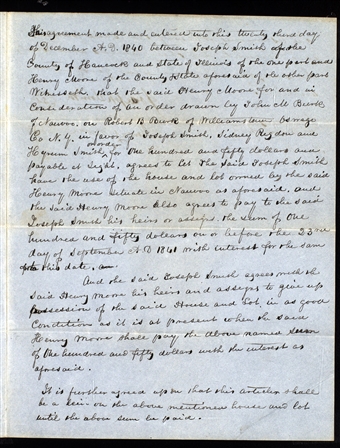 This agreement made and entered into this twenty third day
of December A.D. 1840 between Joseph Smith of the
County of Hancock and State of Illinois of the one part and
Henry Moore of the County & State aforesaid of the other part
Witnesseth, that the said Henry Moore for and in
Consideration of an order drawn by John M Burk
of Nauvoo. on Robert N Burk of Williamstown Oswego
Co N.Y. in favor of Joseph Smith, Sidney Rigdon and
Hyrum Smith, or order for One hundred and fifty dollars and
payable at Sight, agrees to let the said Joseph Smith
have the use of the house and lot owned by the said
Henry Moore situate in Nauvoo as aforesaid, and
the said Henry Moore also agrees to pay to the said
Joseph Smith his heirs or assigns. the sum of One
hundred and fifty dollars on or before the 23rd
day of September A D 1841 with interest for the same
from this date,
And the said Joseph Smith agrees with the
said Henry Moore his heirs and assigns to give up
possession of the said House and Lot, in as good
Condition as it is at present when the said
Henry Moore shall pay the above named Sum
of One hundred and fifty dollars with the interest as
aforesaid.
It is further agreed upon that this articles shall
be a lien on the above mentioned house and lot
until the above sum be paid.